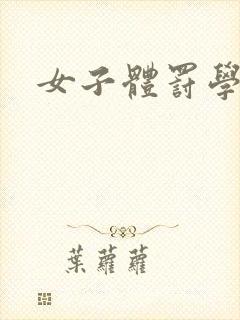 女子體罰學
葉蘿蘿